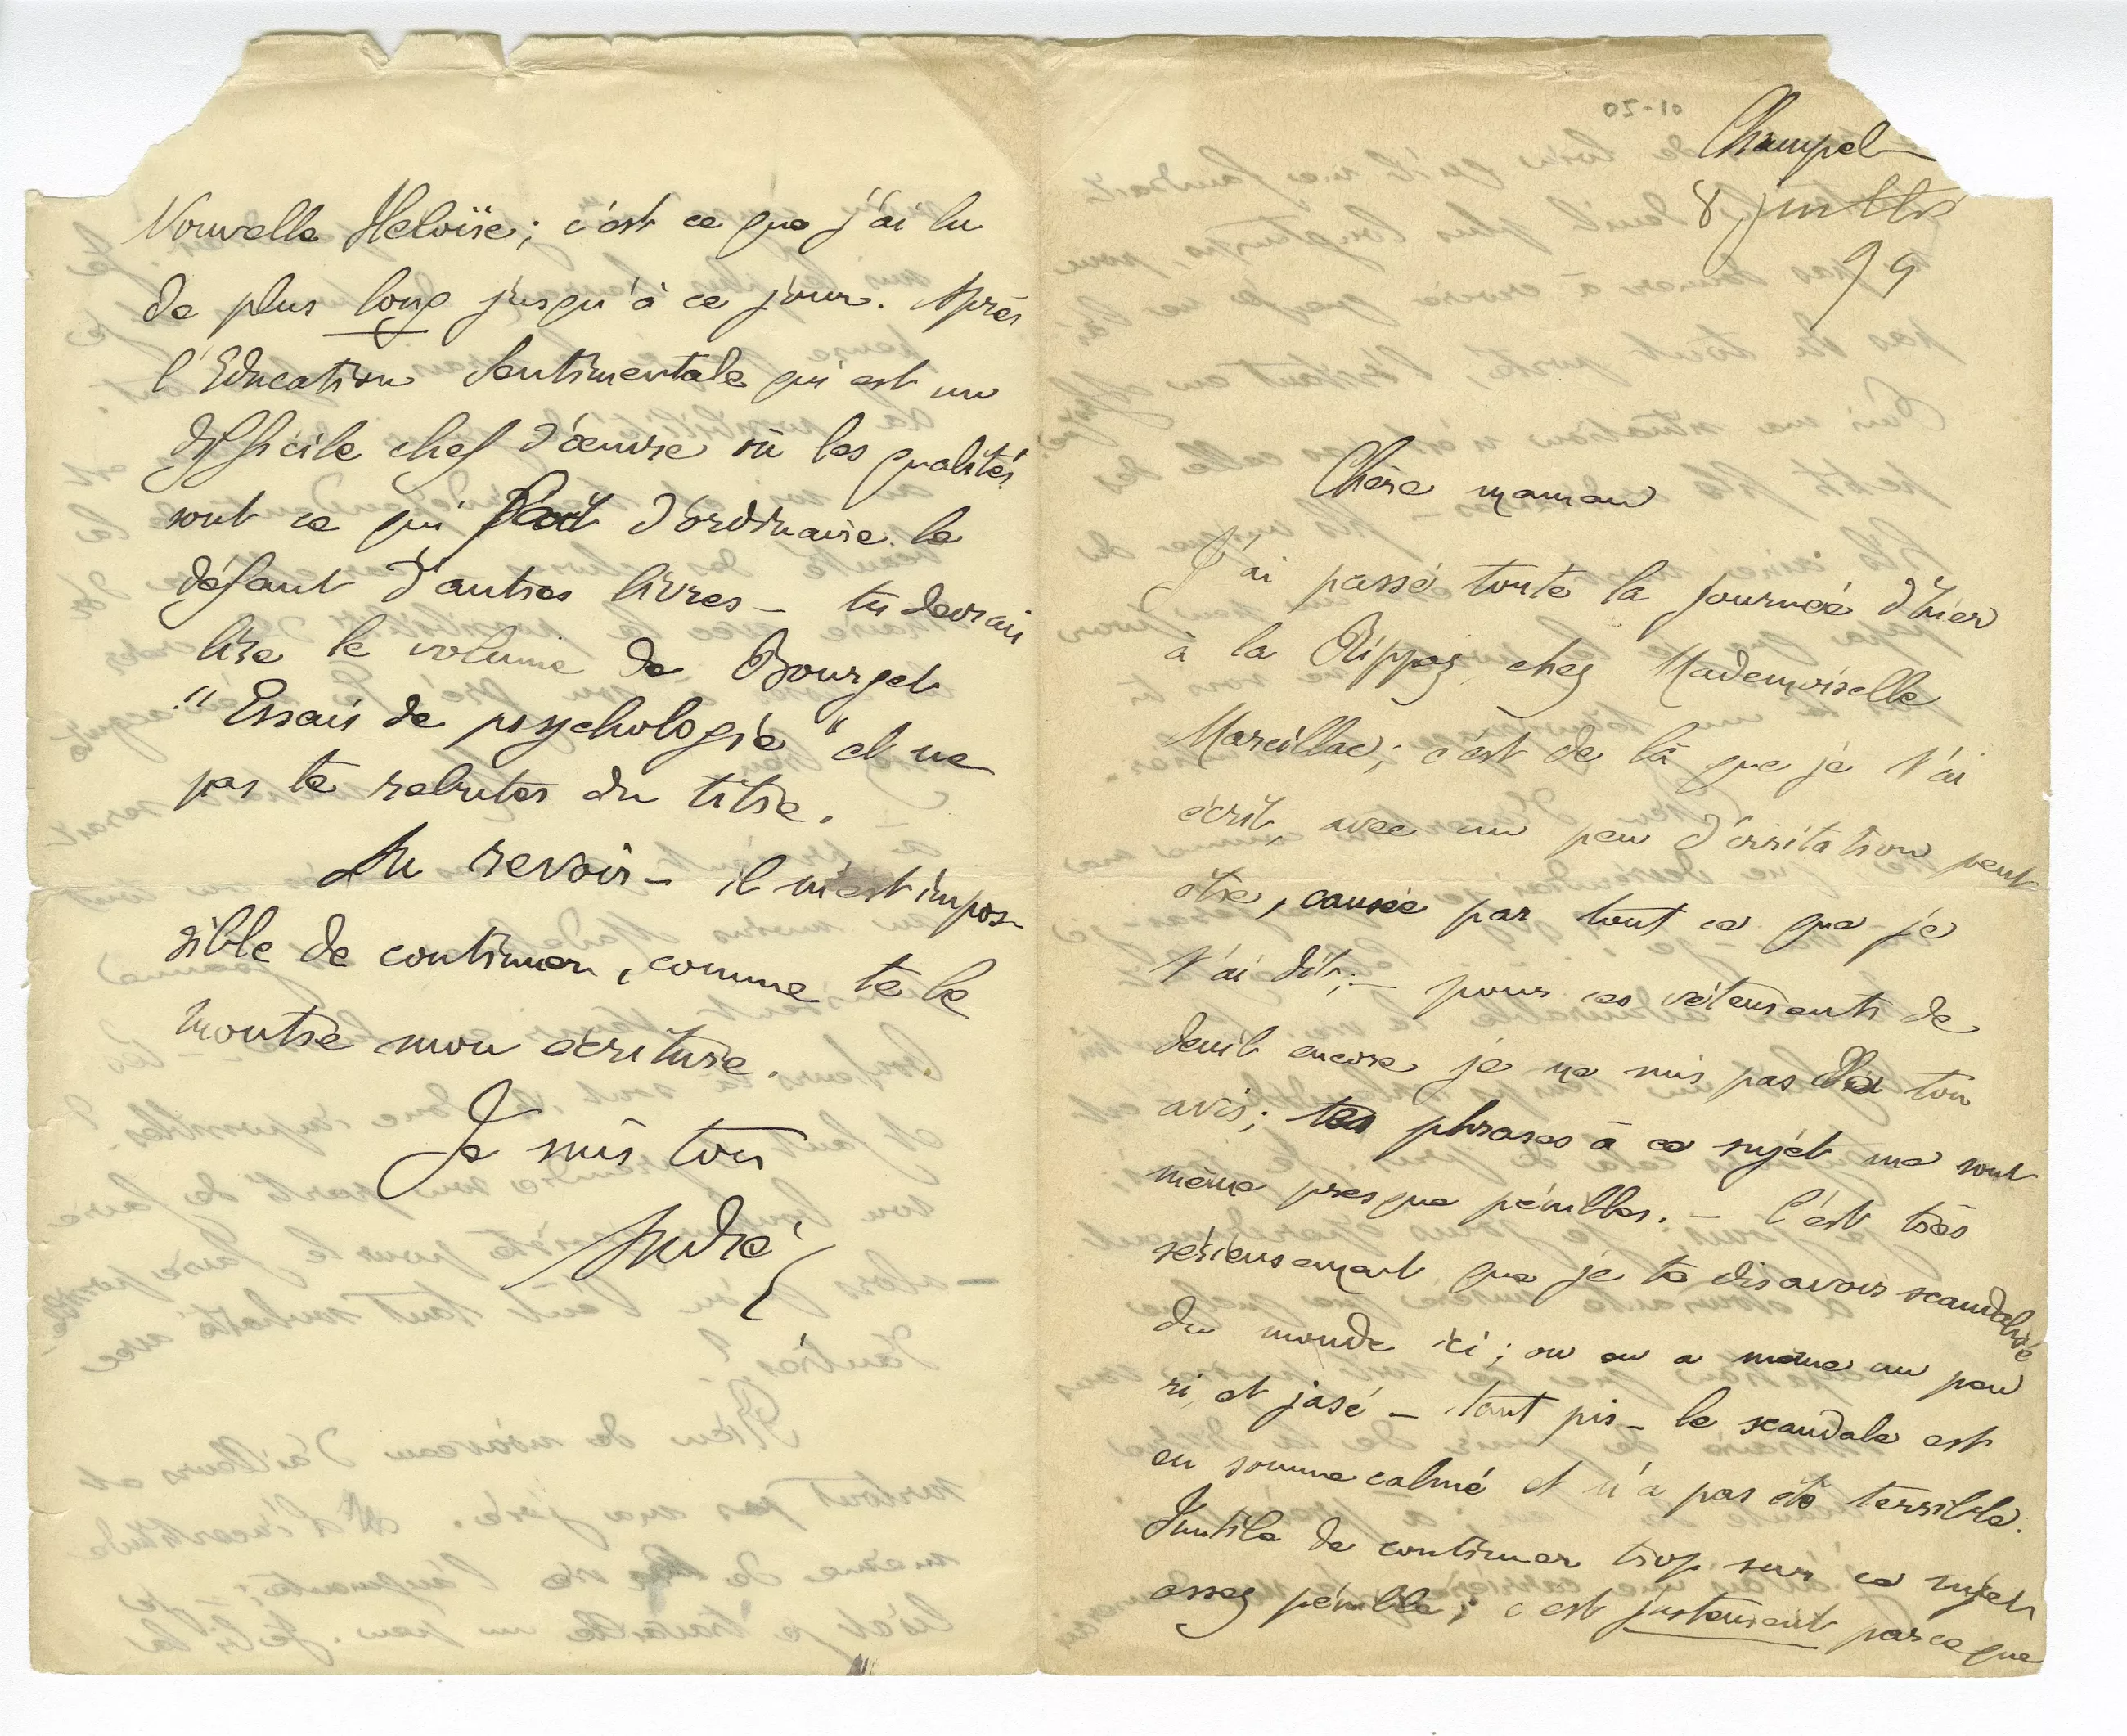 Champel
8 juillet
99
Chère maman
J'ai passé toute la journée d'hier
à la Rippaz chez Mademoiselle
Marcillac; c'est de là que je t'ai
écrit, avec un peu d'irritation peut
être, causée par tout ce que je
t'ai dit; – pour ces vêtements de
deuil encore je ne suis pas de ton
avis; tes phrases à ce sujet me sont
même presque pénibles. – C'est très
sérieusement que je te dis avoir scandalisé
du monde ici; on en a même un peu
ri, et jasé – tant pis – le scandale est
en somme calmé et n'a pas été terrible.
Inutile de continuer trop sur ce sujet
assez pénible; c'est justement parce que
Nouvelle Heloïse; c'est ce que j'ai lu
de plus long jusqu'à ce jour. Après
l'Education Sentimentale qui est un
difficile chef d'œuvre où les qualités
sont ce qui fait d'ordinaire le
défaut d'autres livres – tu devrais
lire le volume de Bourget
"Essais de psychologie" et ne
pas te rebuter du titre.
Au revoir – il m'est impos-
sible de continuer, comme te le
montre mon écriture.
Je suis ton
André